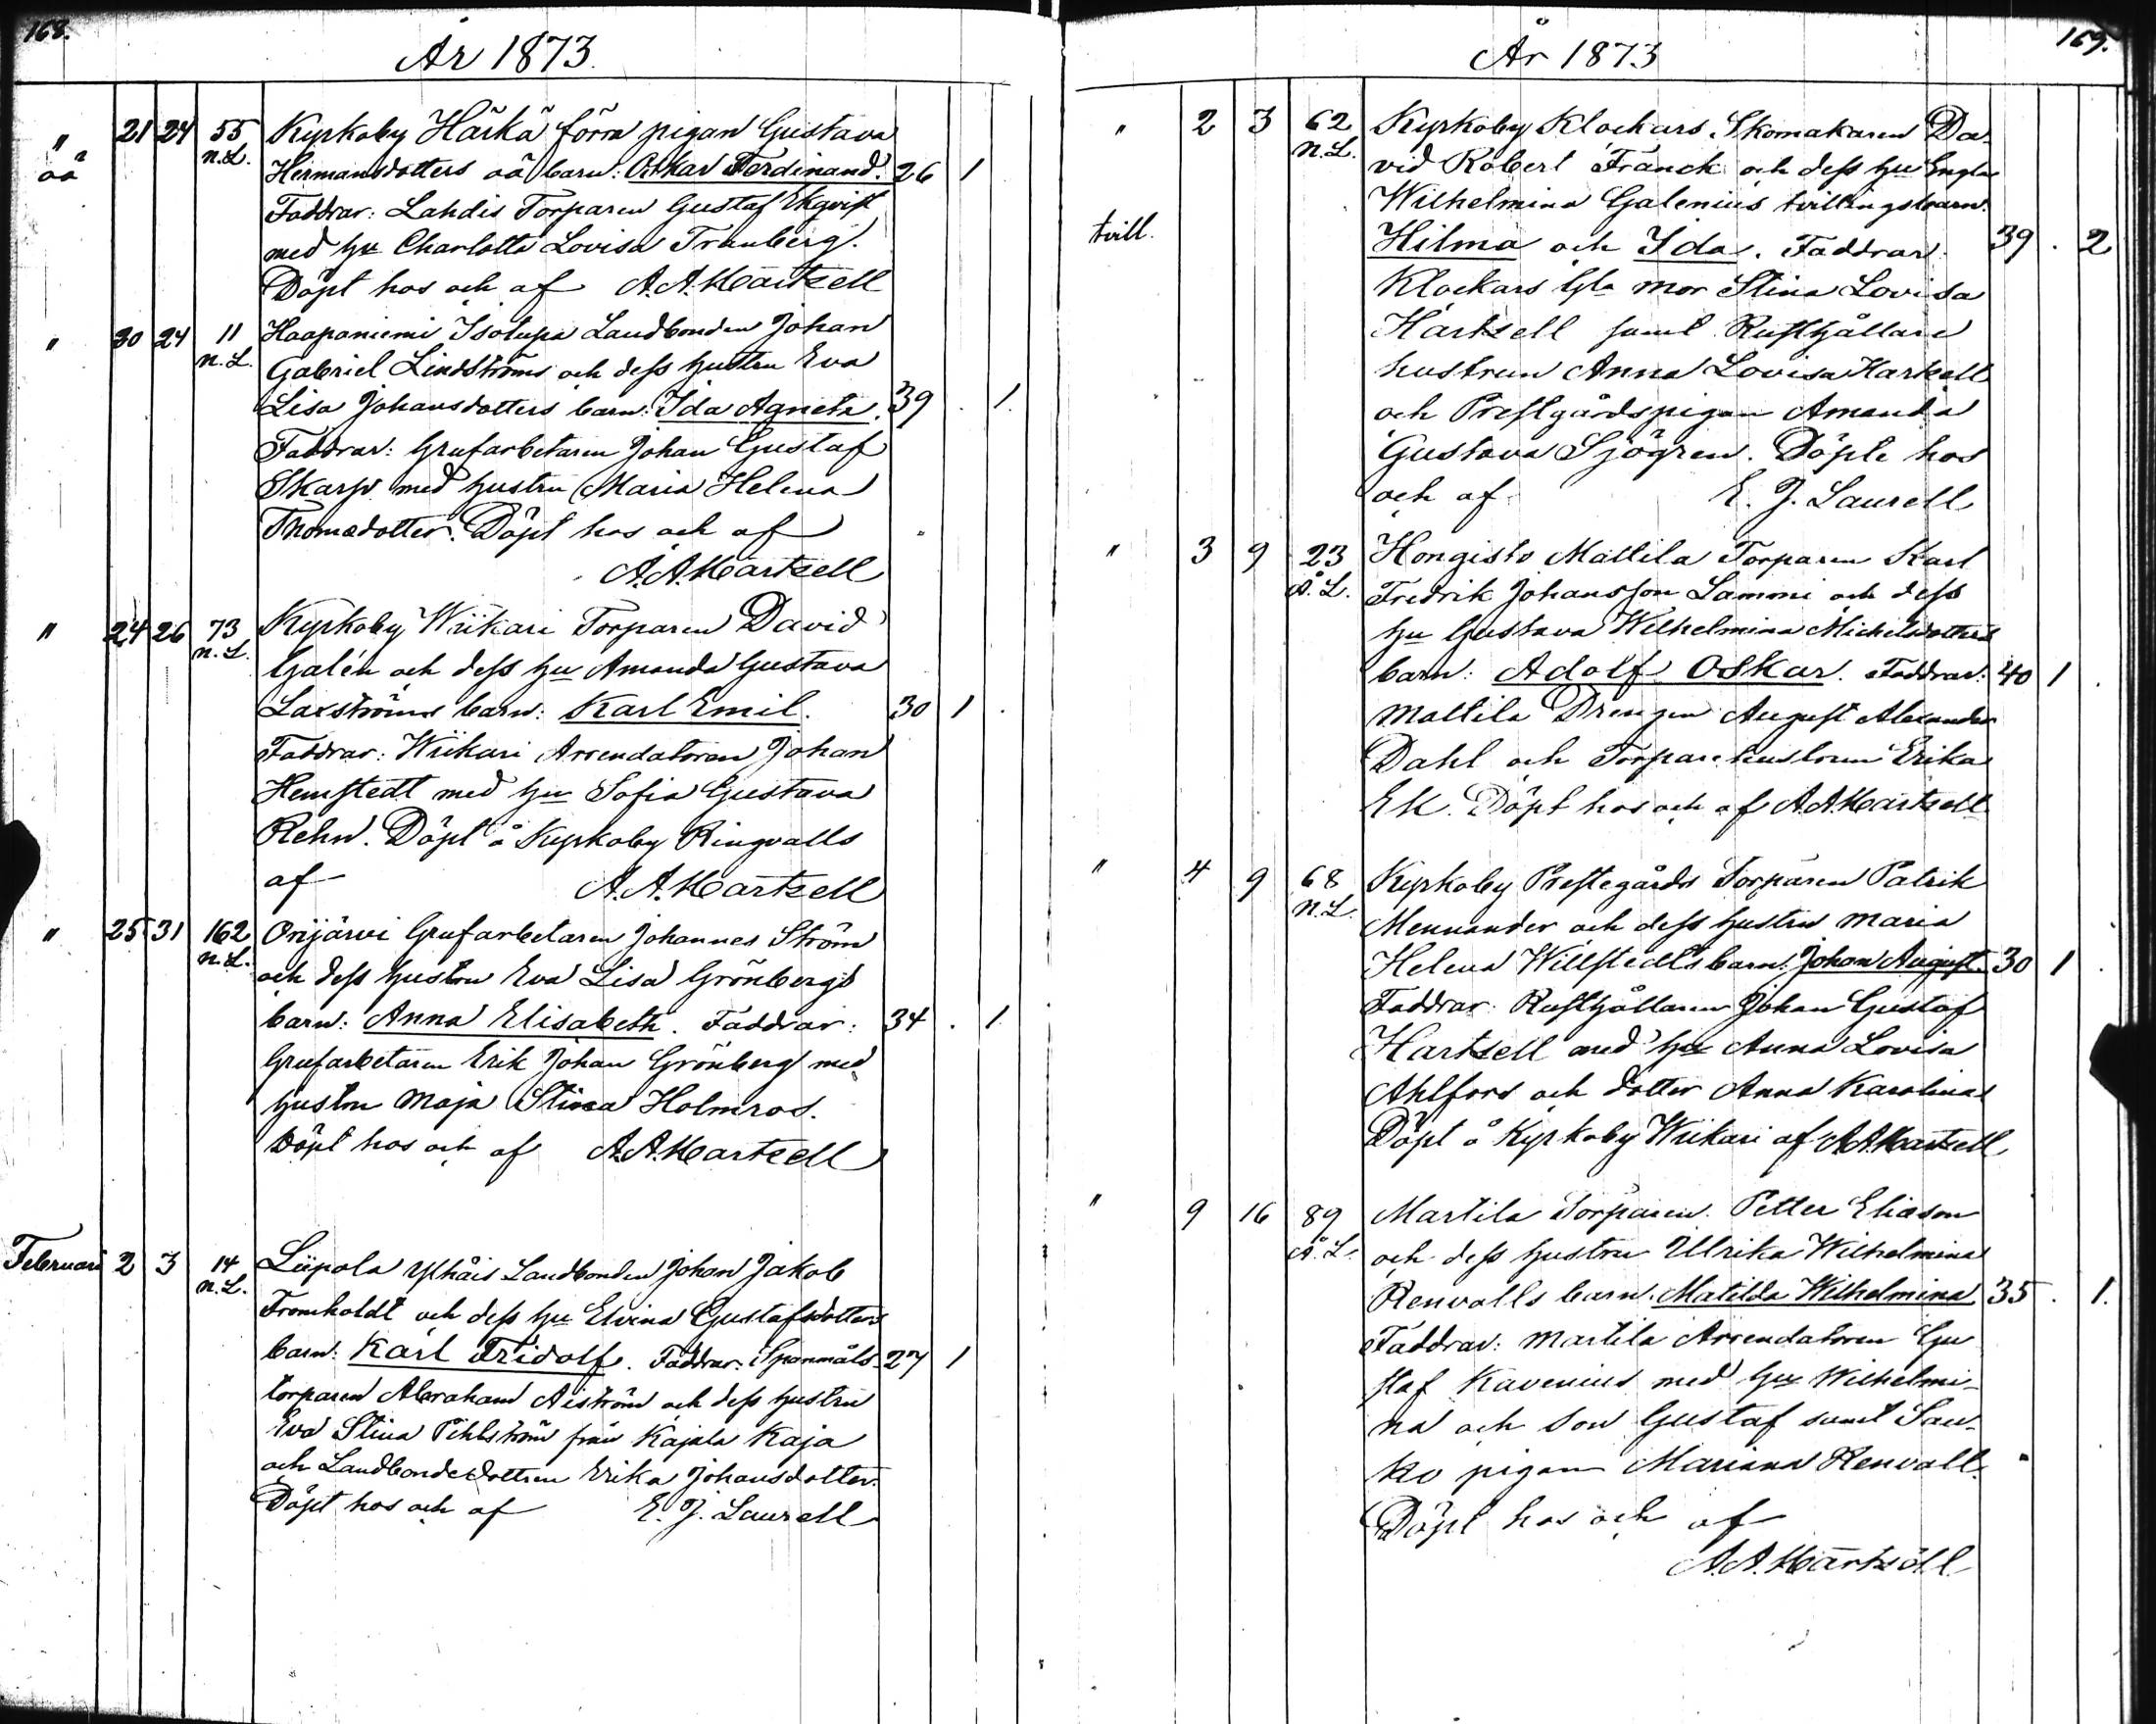 168.
År 1873.
" 21 24 55 Kyrkoby Härkä förra pigan Gustava
oä n.L. Hermansdotters oä barn: Oskar Ferdinand. 26 1
Faddrar: Lahdis Torparen Gustaf Ekqvist
med hu Charlotta Lovisa Tranberg.
Döpt hos och af A.A. Härtzell
" 30 24 11 Haapaniemi Isotupa Landbonden Johan
n.L. Gabriel Lindströms och dess hustru Eva
Lisa Johansdotters barn: Ida Agneta. 39 . 1.
Faddrar: Grufarbetaren Johan Gustaf
Skarp med hustru Maria Helena
Thomasdotter. Döpt hos och af
A.A. Härtzell
" 24 26 73 Kyrkoby Wiikari Torparen David
n.L. Galén och dess hu Amanda Gustava
Laxströms barn: Karl Emil. 30 1 .
Faddrar: Wiikari Arrendatoren Johan
Hemstedt med hu Sofia Gustava
Rehn. Döpt å Kyrkoby Ringvalls
af A.A. Härtzell
" 25 31 162 Orijärvi Grufarbetaren Johannes Ström
n.L. och dess hustru Eva Lisa Grönbergs
barn: Anna Elisabeth. Faddrar: 34 . 1
Grufarbetaren Erik Johan Grönberg med
hustru Maja Stina Holmros.
Döpt hos och af A.A. Härtzell
Februari 2 3 14 Liipola Yliháis Landbonden Johan Jakob
n.L. Fromholdt och dess hu Elvina Gustafsdotters
barn: Karl Fridolf. Faddrar: Spanmåls- 27 1
torparen Abraham Aiström och dess hustru
Eva Stina Pihlström från Kajala Kaja
och Landbondedottren Erika Johansdotter.
Döpt hos och af E. J. Laurell
169.
År 1873
" 2 3 62 Kyrkoby Klockars Skomakaren Da-
n.L. vid Robert Franck och dess hu Engla
Wilhelmina Galenius tvillingsbarn:
tvill. Hilma och Ida. Faddrar: 39 . 2
Klockars Gla mor Stina Lovisa
Härtzell samt Rusthållare
hustrun Anna Lovisa Härtzell
och Prestgårdspigan Amanda
Gustava Sjögren. Döpte hos
och af E. J. Laurell
" 3 9 23 Hongisto Mattila Torparen Karl
Å.L. Fredrik Johansson Lammi och dess
hu Gustava Wilhelmina Michelsdotters
barn: Adolf Oskar. Faddrar: 40 1 .
Mattila Drengen August Alexander
Dahl och Torparehustrun Erika
Ek. Döpt hos och af A.A. Härtzell
" 4 9 68 Kyrkoby Prestegårds Torparen Patrik
n.L. Mennander och dess hustru Maria
Helena Willstedts barn: Johan August. 30 1 .
Faddrar: Rusthållaren Johan Gustaf
Härtzell med hu Anna Lovisa
Ahlfors och dotter Anna Karolina
Döpt å Kyrkoby Wiikari af A.A. Härtzell
" 9 16 89 Martila Torparen Petter Eliasson
Å.L. och dess hustru Ulrika Wilhelmina
Renvalls barn: Matilda Wilhelmina 35 . 1.
Faddrar: Martila Arrendatoren Gu
staf Kavenius med hu Wilhelmi-
na och son Gustaf samt Sau-
ko pigan Mariana Renvall.
Döpt hos och af
A.A. Härtzell